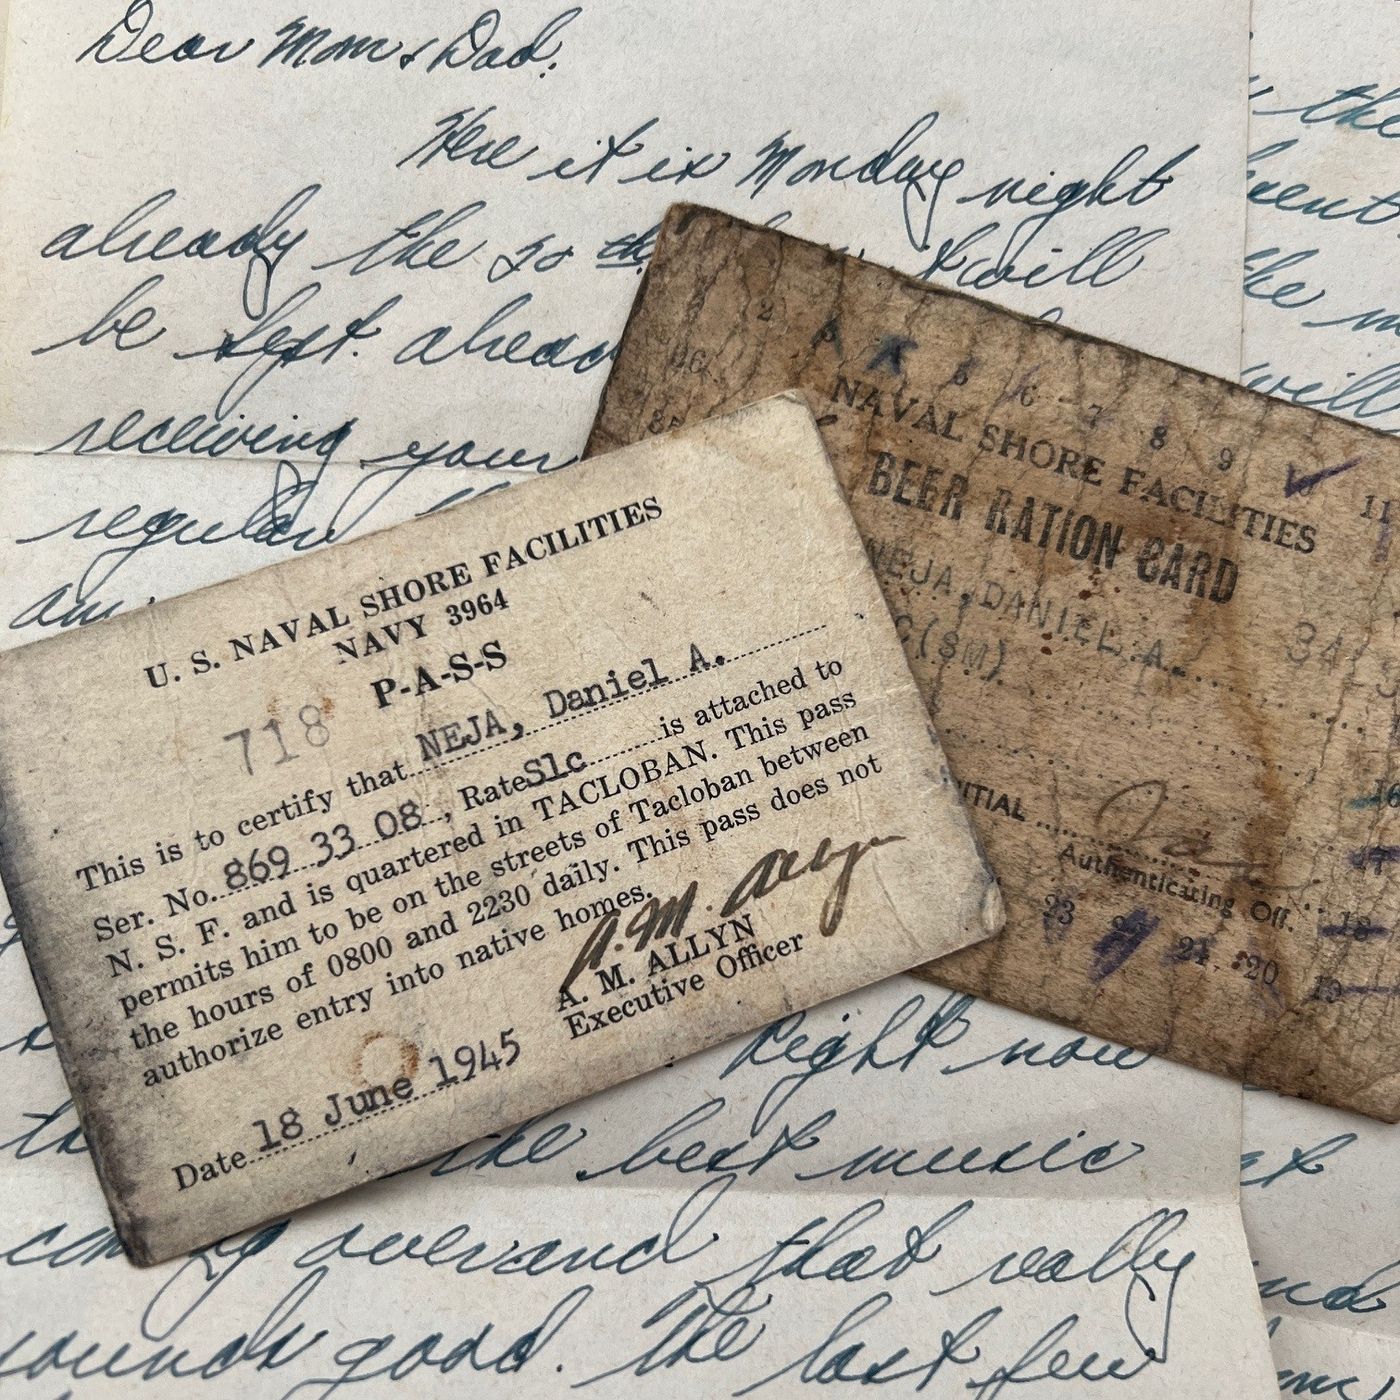 Dear Mom & Dad:
Here it is Monday night
already the 30th will
be Sept. alread
receiving your
regular
the
the
will
2 3 5 6 7 8 9 11
NAVAL SHORE FACILITIES
BEER RATION CARD
NEJA, DANIEL A. 34
C(SM)
INITIAL
Authenticating Off.
16
17
18
23 21 20 19
U. S. NAVAL SHORE FACILITIES
NAVY 3964
P-A-S-S
718
This is to certify that NEJA, Daniel A.
Ser. No. 869 33 08, Rate S1c is attached to
N. S. F. and is quartered in TACLOBAN. This pass
permits him to be on the streets of Tacloban between
the hours of 0800 and 2230 daily. This pass does not
authorize entry into native homes.
A. M. Allyn
A. M. ALLYN
Executive Officer
Date 18 June 1945
Right now
the best music
coming over and that really
sounds good. The last few